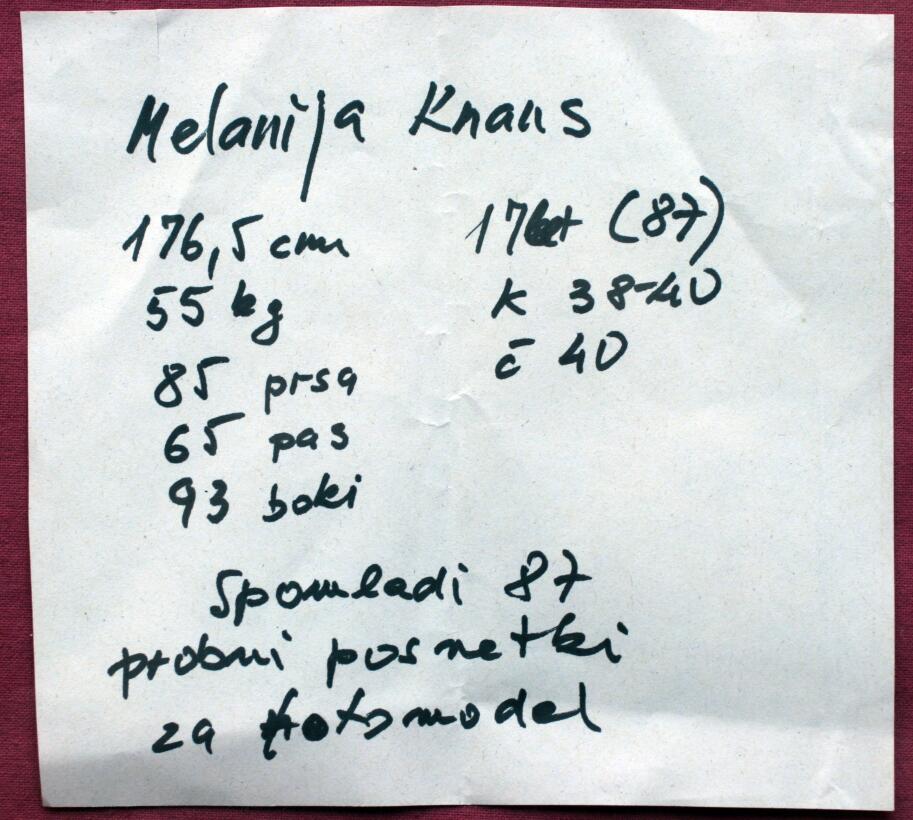 Melanija Knaus
176,5 cm
55 kg
85 prsa
65 pas
93 boki
17 let (87)
k 38-40
č 40
Spomladi 87
probni posnetki
za fotomodel